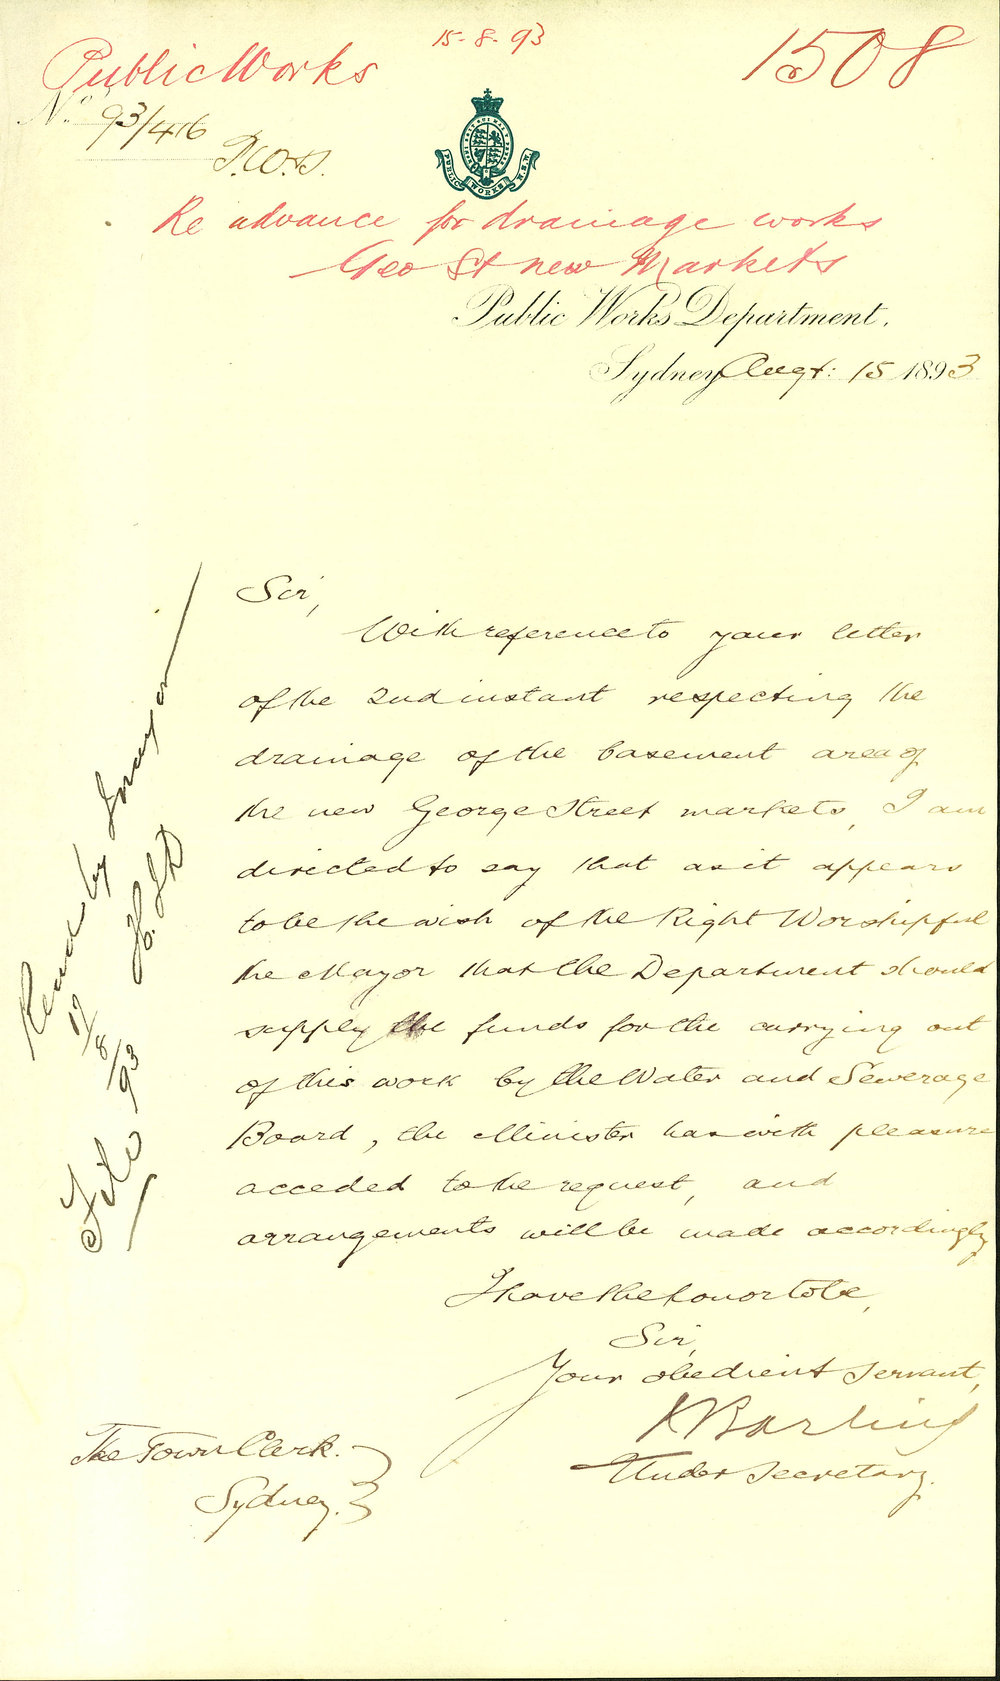 15-8-93
Public Works
1508
No. 93/416
P.W.D.
PUBLIC WORKS N.S.W.
Re advance for drainage works
Geo St new Markets
Public Works Department,
Sydney Augt: 15 1893
Sir,
With reference to your letter
of the 2nd instant respecting the
drainage of the basement area of
the new George Street markets, I am
directed to say that as it appears
to be the wish of the Right Worshipful
the Mayor that the Department should
supply the funds for the carrying out
of this work by the Water and Sewerage
Board, the Minister has with pleasure
acceded to the request, and
arrangements will be made accordingly
I have the honor to be,
Sir,
Your obedient servant,
Barling
Under Secretary.
The Town Clerk.
Sydney.
Read by Surveyor
17/8/93
File